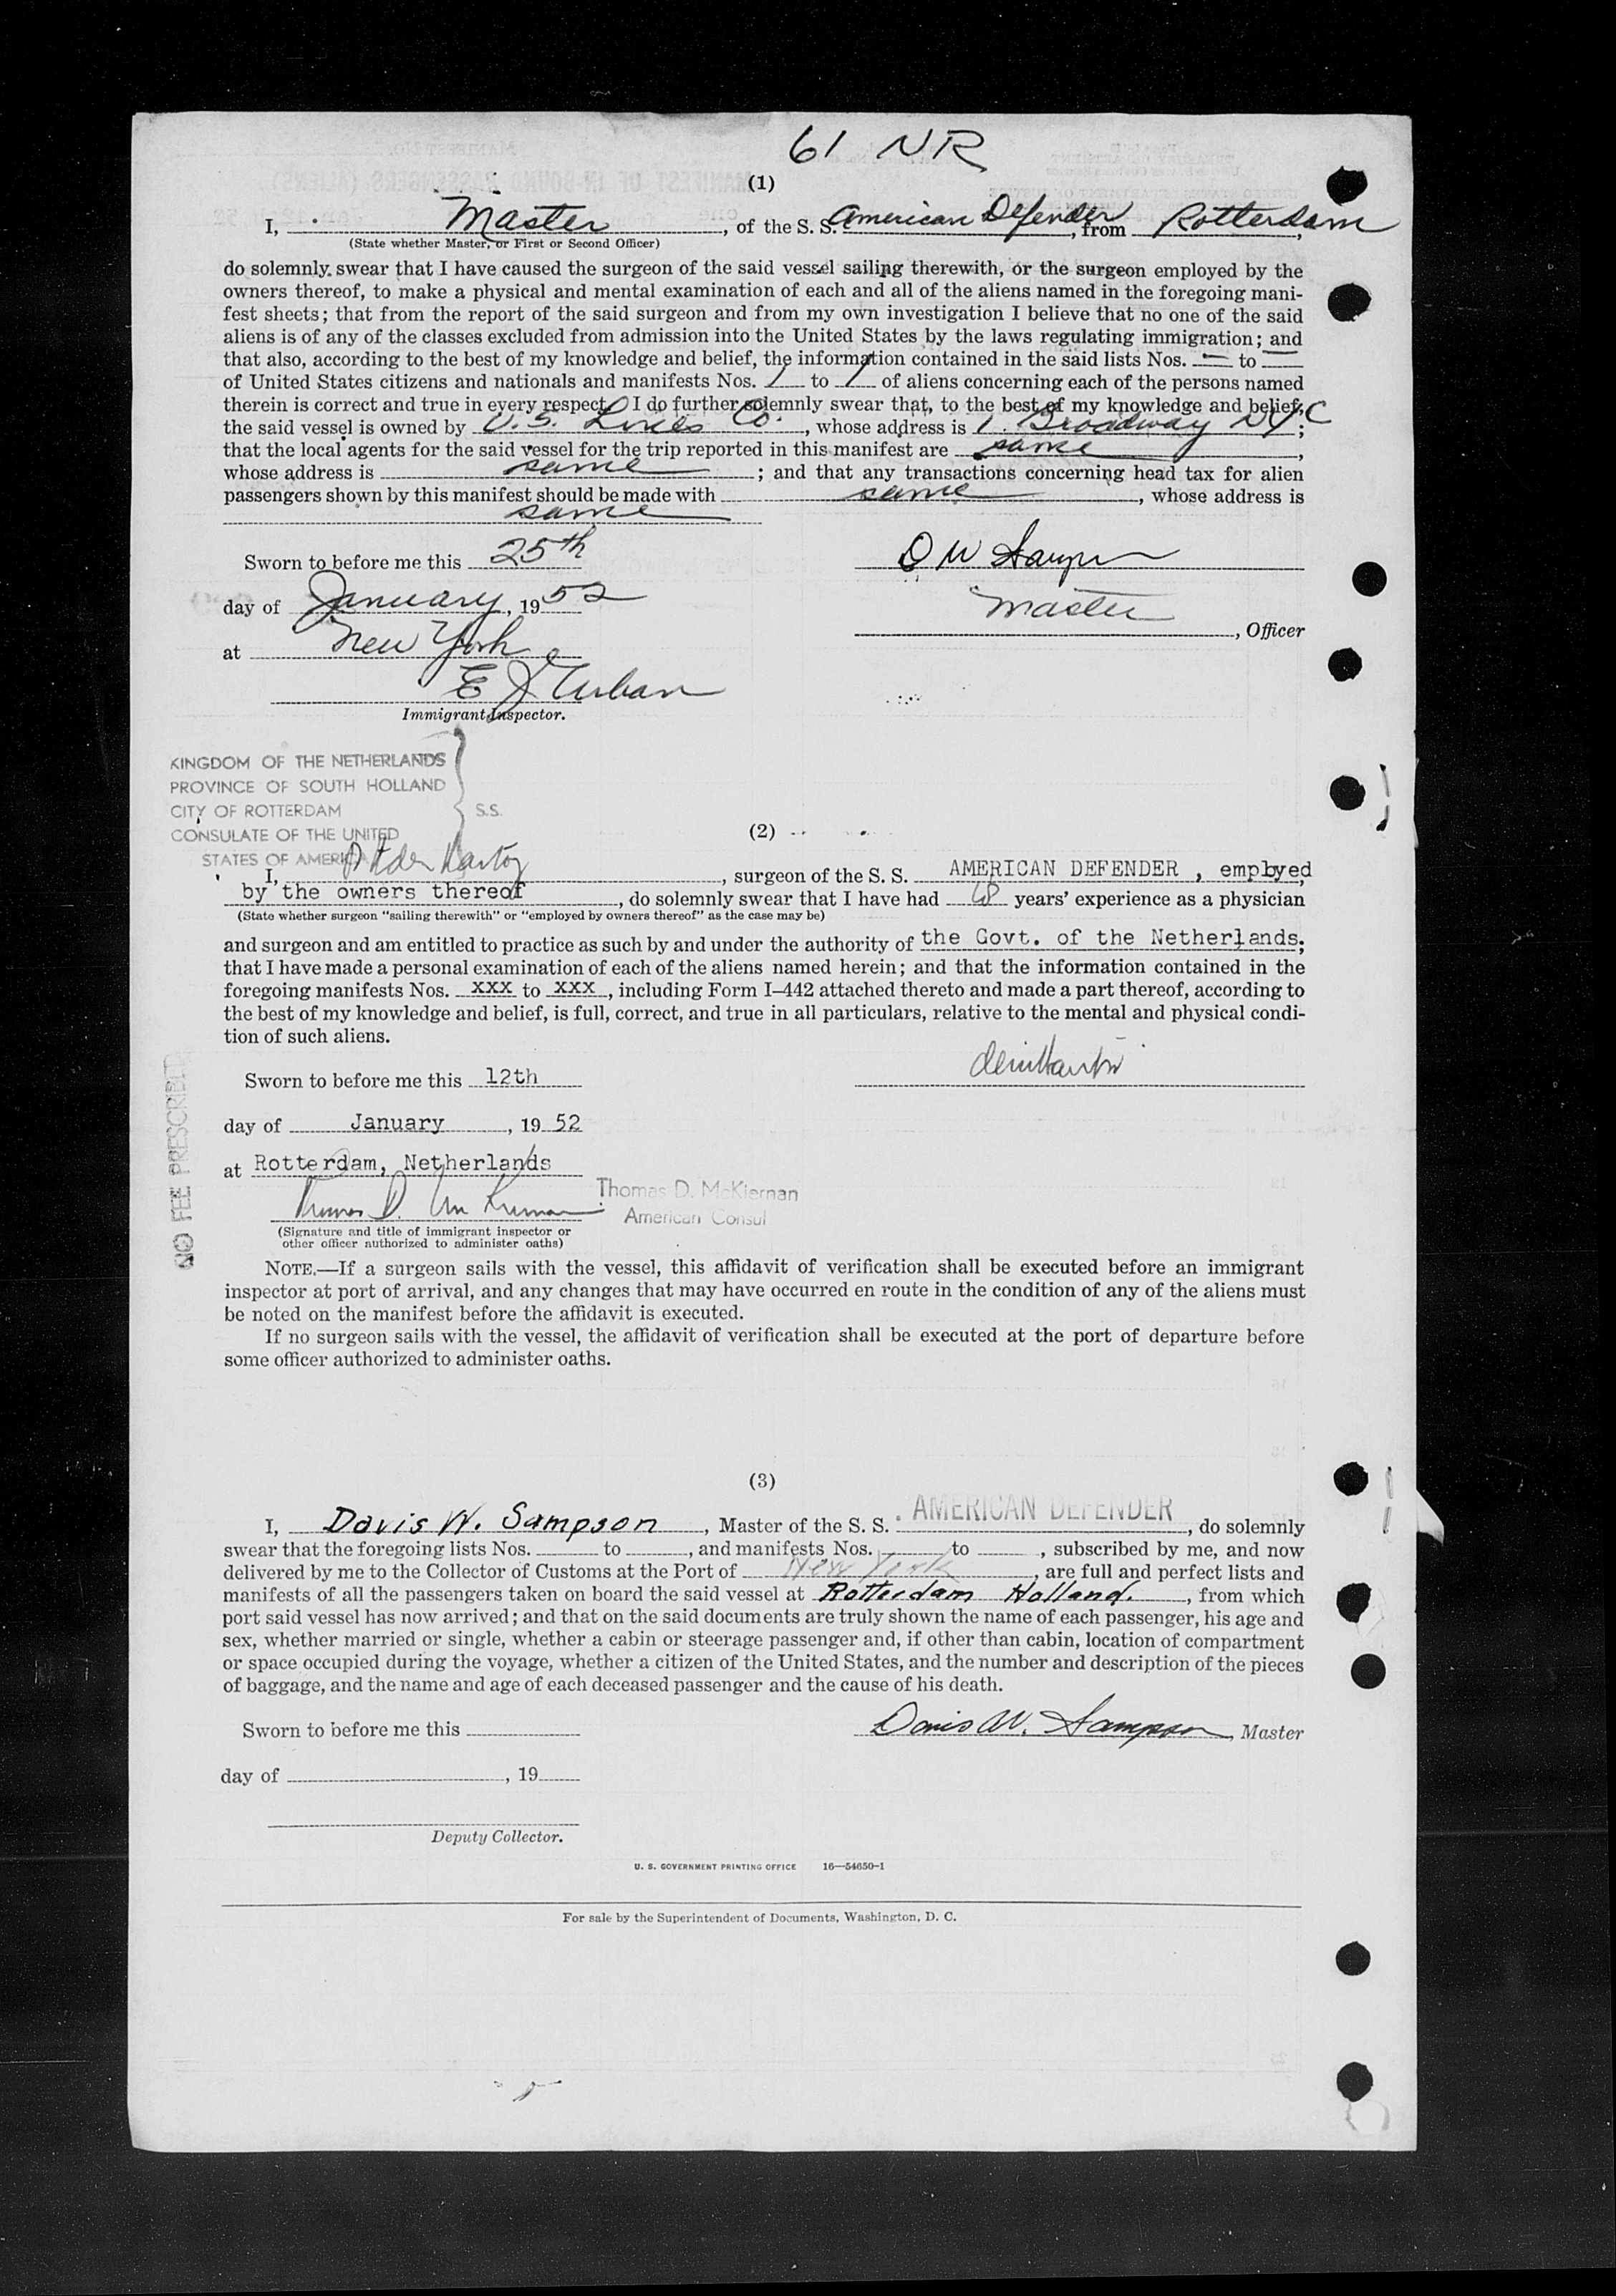 61 NR
(1)
I, Master, of the S. S. American Defender, from Rotterdam,
(State whether Master, or First or Second Officer)
do solemnly swear that I have caused the surgeon of the said vessel sailing therewith, or the surgeon employed by the
owners thereof, to make a physical and mental examination of each and all of the aliens named in the foregoing mani-
fest sheets; that from the report of the said surgeon and from my own investigation I believe that no one of the said
aliens is of any of the classes excluded from admission into the United States by the laws regulating immigration; and
that also, according to the best of my knowledge and belief, the information contained in the said lists Nos. — to —
of United States citizens and nationals and manifests Nos. 1 to 1 of aliens concerning each of the persons named
therein is correct and true in every respect. I do further solemnly swear that, to the best of my knowledge and belief,
the said vessel is owned by U.S. Lines Co., whose address is 1 Broadway NYC;
that the local agents for the said vessel for the trip reported in this manifest are same,
whose address is same; and that any transactions concerning head tax for alien
passengers shown by this manifest should be made with same, whose address is
same
Sworn to before me this 25th
day of January, 1952
at New York
E J Urban
Immigrant Inspector.
D W Sampson
Master, Officer
KINGDOM OF THE NETHERLANDS
PROVINCE OF SOUTH HOLLAND
CITY OF ROTTERDAM S.S.
CONSULATE OF THE UNITED
STATES OF AMERICA
(2)
I, , surgeon of the S. S. AMERICAN DEFENDER, employed
by the owners thereof, do solemnly swear that I have had years' experience as a physician
(State whether surgeon "sailing therewith" or "employed by owners thereof" as the case may be)
and surgeon and am entitled to practice as such by and under the authority of the Govt. of the Netherlands;
that I have made a personal examination of each of the aliens named herein; and that the information contained in the
foregoing manifests Nos. xxx to xxx, including Form I-442 attached thereto and made a part thereof, according to
the best of my knowledge and belief, is full, correct, and true in all particulars, relative to the mental and physical condi-
tion of such aliens.
Sworn to before me this 12th
day of January, 19 52
at Rotterdam, Netherlands
Thomas D. McKiernan
Thomas D. McKiernan
American Consul
(Signature and title of immigrant inspector or
other officer authorized to administer oaths)
NO FEE PRESCRIBED
NOTE.—If a surgeon sails with the vessel, this affidavit of verification shall be executed before an immigrant
inspector at port of arrival, and any changes that may have occurred en route in the condition of any of the aliens must
be noted on the manifest before the affidavit is executed.
If no surgeon sails with the vessel, the affidavit of verification shall be executed at the port of departure before
some officer authorized to administer oaths.
(3)
I, Davis W. Sampson, Master of the S. S. AMERICAN DEFENDER, do solemnly
swear that the foregoing lists Nos. to , and manifests Nos. to , subscribed by me, and now
delivered by me to the Collector of Customs at the Port of New York, are full and perfect lists and
manifests of all the passengers taken on board the said vessel at Rotterdam Holland., from which
port said vessel has now arrived; and that on the said documents are truly shown the name of each passenger, his age and
sex, whether married or single, whether a cabin or steerage passenger and, if other than cabin, location of compartment
or space occupied during the voyage, whether a citizen of the United States, and the number and description of the pieces
of baggage, and the name and age of each deceased passenger and the cause of his death.
Sworn to before me this
Davis W. Sampson, Master
day of , 19
Deputy Collector.
U. S. GOVERNMENT PRINTING OFFICE 16—54650-1
For sale by the Superintendent of Documents, Washington, D. C.